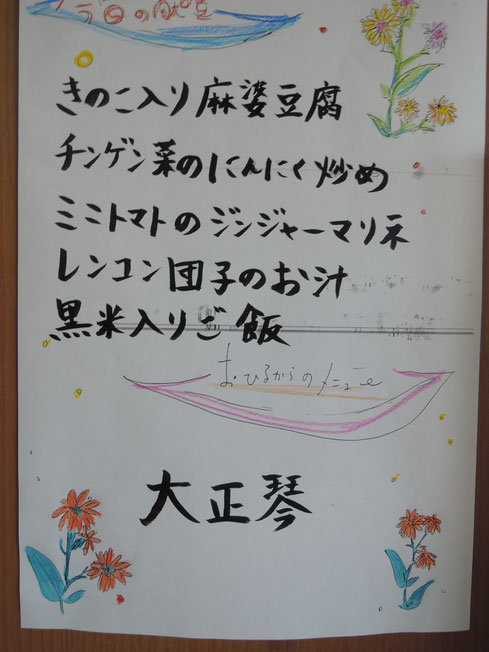 今日の献立
きのこ入り麻婆豆腐
チンゲン菜のにんにく炒め
ミニトマトのジンジャーマリネ
レンコン団子のお汁
黒米入りご飯
おひるからのメニュー
大正琴